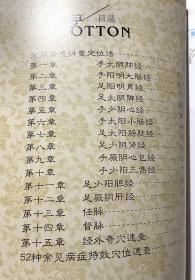 目录
OTTON
常用骨度折量定位法
第一章 手太阴肺经
第二章 手阳明大肠经
第三章 足阳明胃经
第四章 足太阴脾经
第五章 手少阴心经
第六章 手太阳小肠经
第七章 足太阳膀胱经
第八章 足少阴肾经
第九章 手厥阴心包经
第十章 手少阳三焦经
第十一章 足少阳胆经
第十二章 足厥阴肝经
第十三章 任脉
第十四章 督脉
第十五章 经外奇穴速查
52种常见病症特效穴位速查